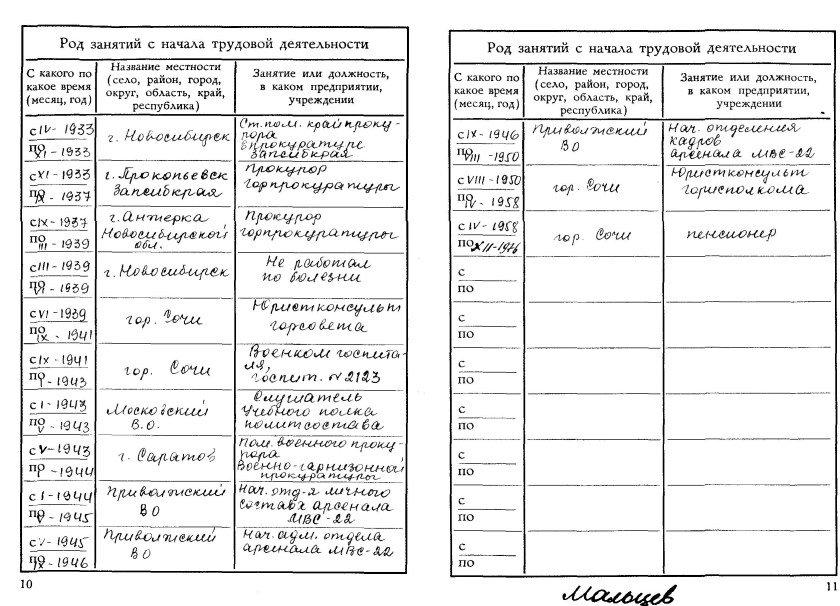 Род занятий с начала трудовой деятельности
С какого по какое время (месяц, год)
Название местности (село, район, город, округ, область, край, республика)
Занятие или должность, в каком предприятии, учреждении
с IV - 1933
по XI - 1933
г. Новосибирск
Ст. пом. крайпроку-
рора
в прокуратуре
Запсибкрая
с XI - 1933
по IX - 1937
г. Прокопьевск
Запсибкрая
Прокурор
горпрокуратуры
с IX - 1937
по III - 1939
г. Анжерка
Новосибирской
обл.
Прокурор
горпрокуратуры
с III - 1939
по VI - 1939
г. Новосибирск
Не работал
по болезни
с VI - 1939
по IX - 1941
гор. Сочи
Юристконсульт
горсовета
с IX - 1941
по I - 1943
гор. Сочи
Военком госпита-
ля,
госпит. № 2123
с I - 1943
по V - 1943
Московский
В.О.
Слушатель
Учебного полка
политсостава
с V - 1943
по - 1944
г. Саратов
Пом. военного проку-
рора
Военно-гарнизонной
прокуратуры
с I - 1944
по V - 1945
Приволжский
ВО
Нач. отд-я личного
состава арсенала
МВС - 22
с V - 1945
по IX - 1946
Приволжский
ВО
Нач. адм. отдела
арсенала МВС - 22
10
Род занятий с начала трудовой деятельности
С какого по какое время (месяц, год)
Название местности (село, район, город, округ, область, край, республика)
Занятие или должность, в каком предприятии, учреждении
с IX - 1946
по VIII - 1950
Приволжский
ВО
Нач. отделения
кадров
арсенала МВС - 22
с VIII - 1950
по IV - 1958
гор. Сочи
Юристконсульт
горисполкома
с IV - 1958
по XII - 1976
гор. Сочи
пенсионер
с
по
с
по
с
по
с
по
с
по
с
по
с
по
11
Мальцев